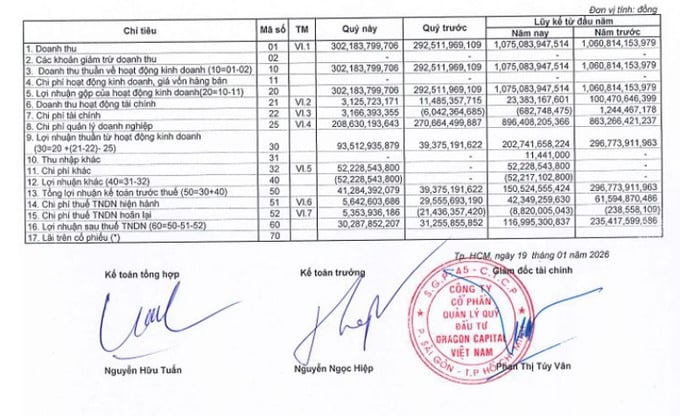 Đơn vị tính: đồng
Chỉ tiêu Mã số TM Quý này Quý trước Lũy kế từ đầu năm
Năm nay Năm trước
1. Doanh thu 01 VI.1 302,183,799,706 292,511,969,109 1,075,083,947,514 1,060,814,153,979
2. Các khoản giảm trừ doanh thu 02 - - - -
3. Doanh thu thuần về hoạt động kinh doanh (10=01-02) 10 302,183,799,706 292,511,969,109 1,075,083,947,514 1,060,814,153,979
4. Chi phí hoạt động kinh doanh, giá vốn hàng bán 11 - - - -
5. Lợi nhuận gộp của hoạt động kinh doanh(20=10-11) 20 302,183,799,706 292,511,969,109 1,075,083,947,514 1,060,814,153,979
6. Doanh thu hoạt động tài chính 21 VI.2 3,125,723,171 11,485,357,715 23,383,167,601 100,470,646,399
7. Chi phí tài chính 22 VI.3 3,166,393,355 (6,042,364,685) (682,748,475) 1,244,467,178
8. Chi phí quản lý doanh nghiệp 25 VI.4 208,630,193,643 270,664,499,887 896,408,205,366 863,266,421,237
9. Lợi nhuận thuần từ hoạt động kinh doanh
(30=20 +(21-22)- 25) 30 93,512,935,879 39,375,191,622 202,741,658,224 296,773,911,963
10. Thu nhập khác 31 - - 11,441,000 -
11. Chi phí khác 32 VI.5 52,228,543,800 - 52,228,543,800 -
12. Lợi nhuận khác (40=31-32) 40 (52,228,543,800) - (52,217,102,800) -
13. Tổng lợi nhuận kế toán trước thuế (50=30+40) 50 41,284,392,079 39,375,191,622 150,524,555,424 296,773,911,963
14. Chi phí thuế TNDN hiện hành 51 VI.6 5,642,603,686 29,555,693,190 42,349,259,630 61,594,870,486
15. Chi phí thuế TNDN hoãn lại 52 VI.7 5,353,936,186 (21,436,357,420) (8,820,005,043) (238,558,109)
16. Lợi nhuận sau thuế TNDN (60=50-51-52) 60 30,287,852,207 31,255,855,852 116,995,300,837 235,417,599,586
17. Lãi trên cổ phiếu (*) 70
Tp. HCM, ngày 19 tháng 01 năm 2026
Kế toán tổng hợp Kế toán trưởng Giám đốc tài chính
CÔNG TY
CỔ PHẦN
QUẢN LÝ QUỸ
ĐẦU TƯ
DRAGON CAPITAL
VIỆT NAM
Nguyễn Hữu Tuấn Nguyễn Ngọc Hiệp Phan Thị Túy Vân